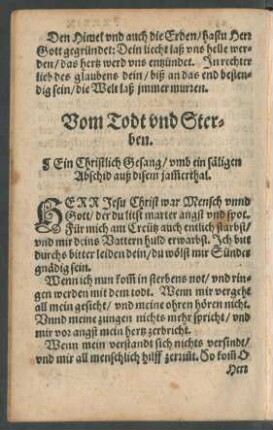 Den Himel vnd auch die Erden/hastu Herr
Gott gegründet: Dein liecht laß vns helle wer-
den/das hertz werd vns entzündet. In rechter
lieb des glaubens dein/biß an das end besten-
dig sein/die Welt laß jmmer murren.
Vom Todt vnd Ster-
ben.
¶ Ein Christlich Gesang/vmb ein säligen
Abschid auß disem jam̃erthal.
HERR Jesu Christ war Mensch vnnd
Gott/der du litst marter angst vnd spot.
Für mich am Creütz auch entlich starbst/
vnd mir deins Vattern huld erwarbst. Ich bitt
durchs bitter leiden dein/du wölst mir Sünder
gnädig sein.
Wenn ich nun kom̃ in sterbens not/vnd rin-
gen werden mit dem todt. Wenn mir vergeht
all mein gesicht/vnd meine ohren hören nicht.
Vnnd meine zungen nichts mehr spricht/vnd
mir vor angst mein hertz zerbricht.
Wenn mein verstandt sich nichts versindt/
vnd mir all menschlich hilff zerrint. So kom̃ O
Herr